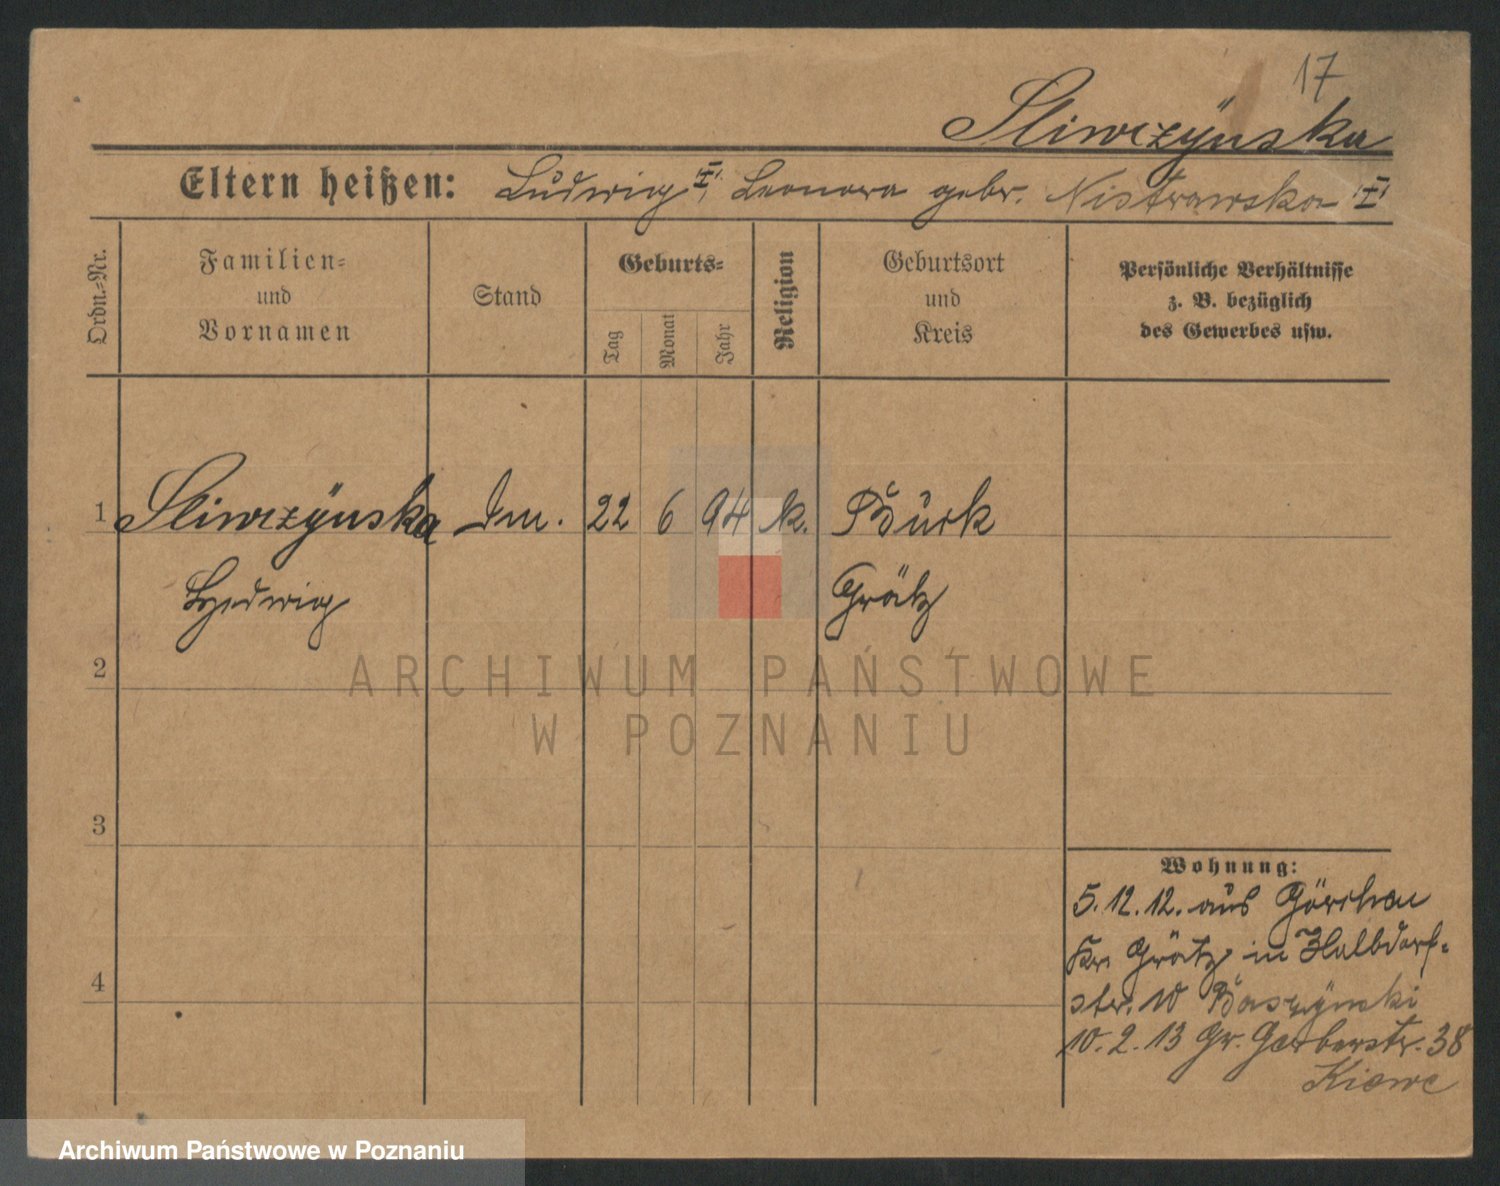 17
Sliwczÿnska
Eltern heißen: Ludwig, Leonora gebr. Nistrawska
Ordn.-Nr.
Familien-
und
Vornamen
Stand
Geburts-
Tag
Monat
Jahr
Religion
Geburtsort
und
Kreis
Persönliche Verhältnisse
z. B. bezüglich
des Gewerbes usw.
1 Sliwczÿnska 22 6 94 k. Buck
Hedwig Grätz
2
ARCHIWUM PAŃSTWOWE
W POZNANIU
3
4
Wohnung:
5.12.12. aus
Kr. Grätz in Halbdorf-
str. 10
10.2.13 Gr. Gerberstr. 38
Archiwum Państwowe w Poznaniu